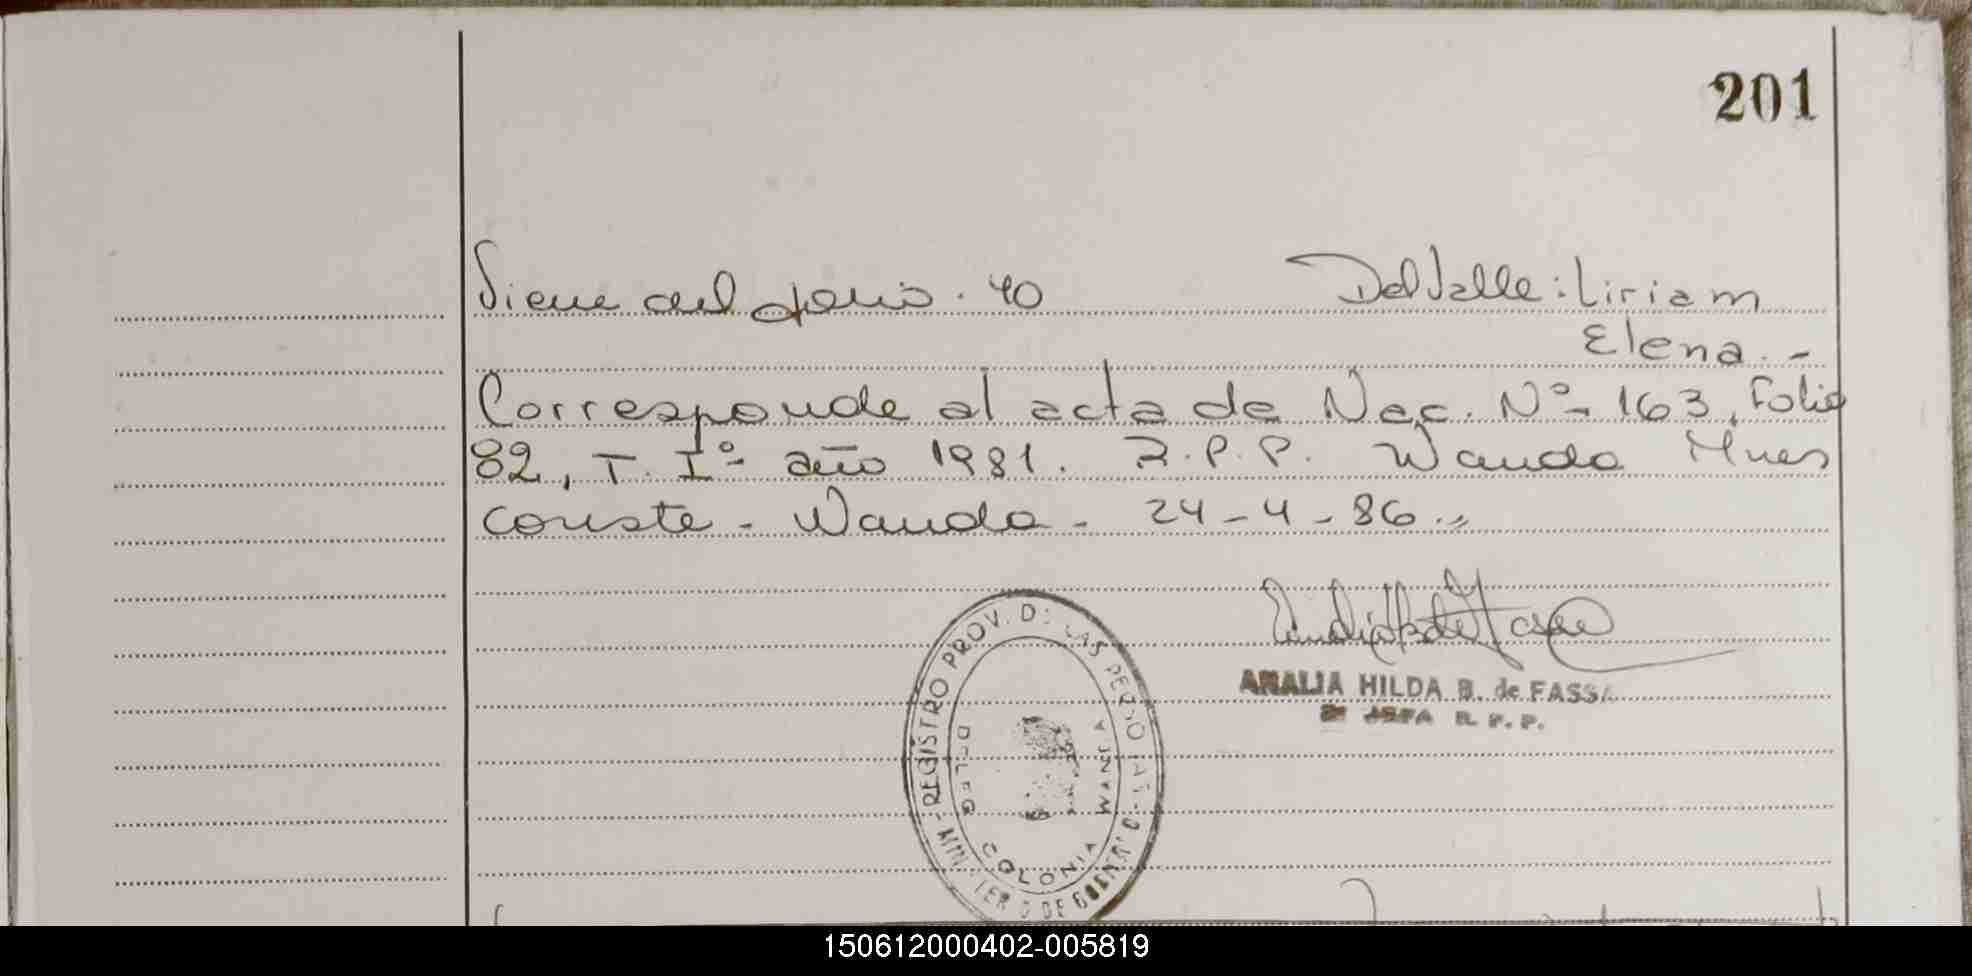 201
Viene del folio. 40 Del Valle: Liriam
Elena. -
Corresponde al acta de Nac. Nº- 163, Folio
82, T. Iº- año 1981. R.P.P. Wanda Mnes
conste - Wanda - 24-4-86.,,
ANALIA HILDA B. de FASSA
2º JEFA R.P.P.
REGISTRO PROV. DE LAS PERSONAS
MINISTERIO DE GOBIERNO
DELEG COLONIA WANDA
150612000402-005819